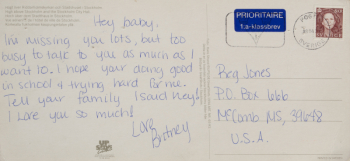 Hey baby,
I'm missing you lots, but too
busy to talk to you as much as I
want to. I hope your doing good
in school & trying hard for me.
Tell your family I said hey!
I love you so much!
Love
Britney
PRIORITAIRE
1:a-klassbrev
Reg Jones
P.O. Box 666
McComb MS, 39648
U.S.A.